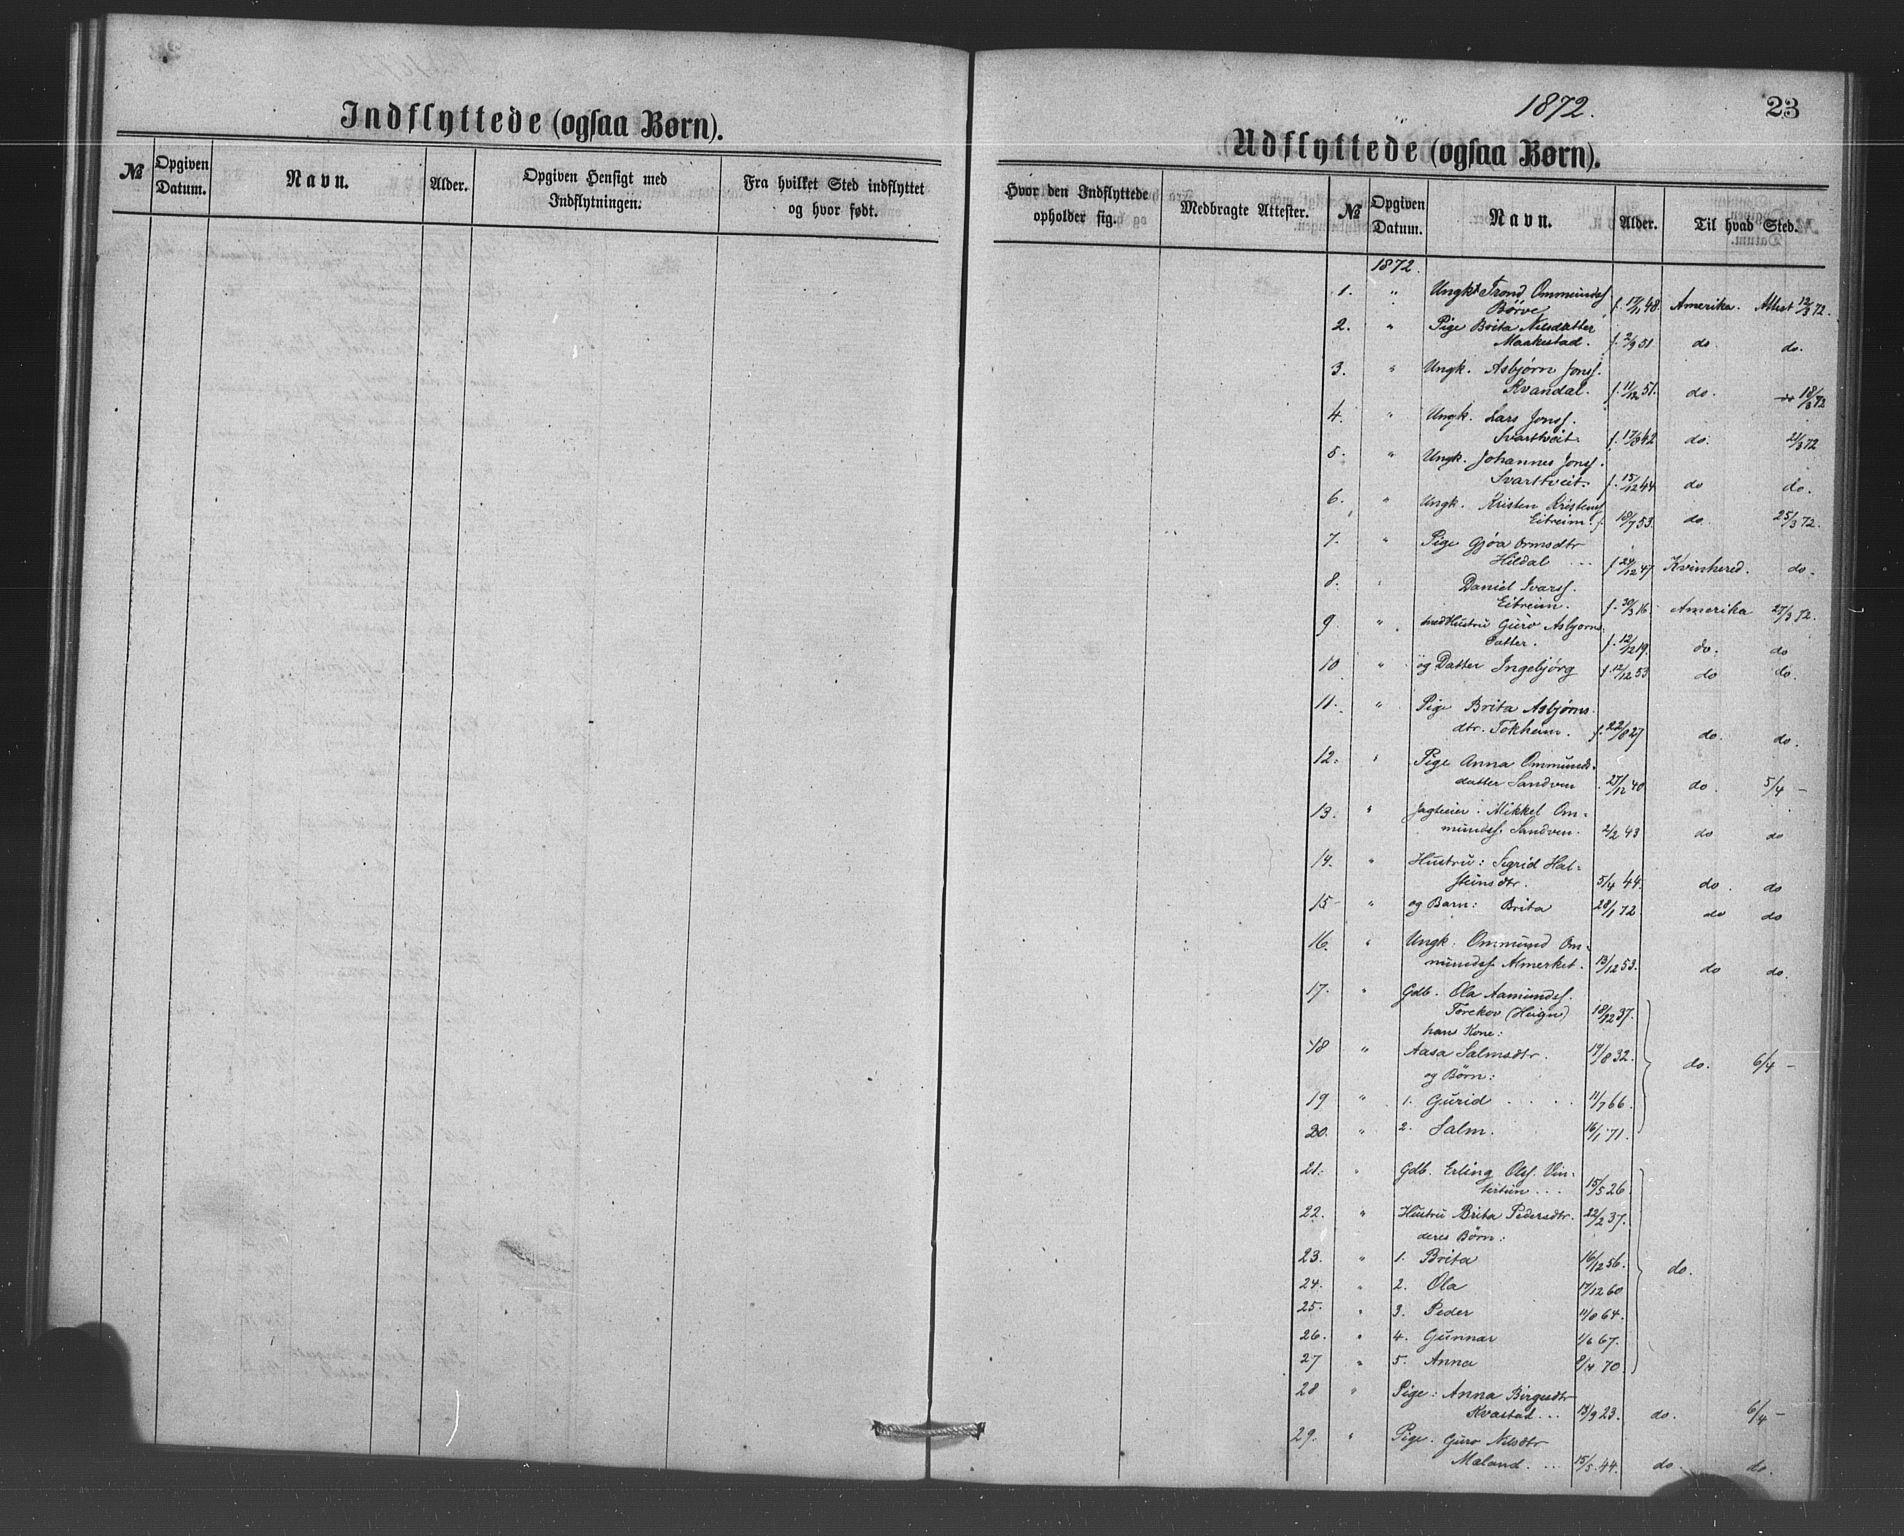 Indflyttede (ogsaa Børn).
№ Opgiven Datum. Navn. Alder. Opgiven Hensigt med Indflytningen. Fra hvilket Sted indflyttet og hvor født.
1872. 23
Udflyttede (ogsaa Børn).
Hvor den Indflyttede opholder sig. Medbragte Attester. № Opgiven Datum. Navn. Alder. Til hvad Sted.
1872.
1. " Ungk. Trond Ommundsf.
Børve f. 17/1 48. Amerika. Attest 12/3 72.
2. " Pige Brita Nilsdatter
Maakestad. f. 2/9 51 do. do.
3. " Ungk. Asbjørn Jonsf.
Kvandal. f. 11/12 51. do. do 18/3 72
4. " Ungk. Lars Jonsf.
Svarttveit f. 17/3 42 do. 21/3 72
5. " Ungk. Johannes Jonsf.
Svarttveit. f. 15/12 44 do do.
6. " Ungk. Kristen Kristensf
Eitreim. f. 18/7 53. do. 25/3 72.
7. " Pige Gjøa Ormsdtr
Hildal ... f. 24/12 47 Kvinhered. do.
8. " Daniel Ivarsf.
Eitreim. f. 30/3 16. Amerika 27/3 72.
9 " med Hustru Guro Asbjorns
Datter. f. 12/12 19. do. do
10 " og Datter Ingebjörg f. 12/12 53 do do.
11. " Pige Brita Asbjørns
dtr. Tokheim. f. 22/8 27 do. do.
12. " Pige Anna Ommunds
datter Sandven 27/12 40 do. 5/4 -
13. " Jagteier. Mikkel Om-
mundsf. Sandven. 2/2 43 do do
14. " Hustru: Sigrid Hal-
steinsdtr. 5/4 44. do. do
15 " og Barn: Brita 28/1 72 do do
16. " Ungk. Ommund Om-
mundsf. Almerket. 13/12 53. do do.
17. " Gdb. Ola Aamundsf.
18/12 37.
hans Kone:
18 " Aasa Salmsdtr. 19/8 32. do. 6/4 -
og Börn:
19 " 1. Gurid 11/7 66.
20. " 2. Salm. 16/1 71.
21. " Gdb. Erling Olsf. Vin-
tertun ... 15/5 26.
22. " Hustru Brita Pedersdtr. 22/2 37.
deres Børn:
23. " 1. Brita 16/12 56. do.
24. " 2. Ola 17/12 60
25. " 3. Peder 11/8 64.
26. " 4. Gunnar 1/6 67.
27 " 5. Anna 8/4 70.
28 " Pige: Anna Birgesdtr
Kvastad ... 13/9 23. do. 6/4 -
29. " Pige. Guro Nilsdtr
Maland. ... 15/5 44. do. do.